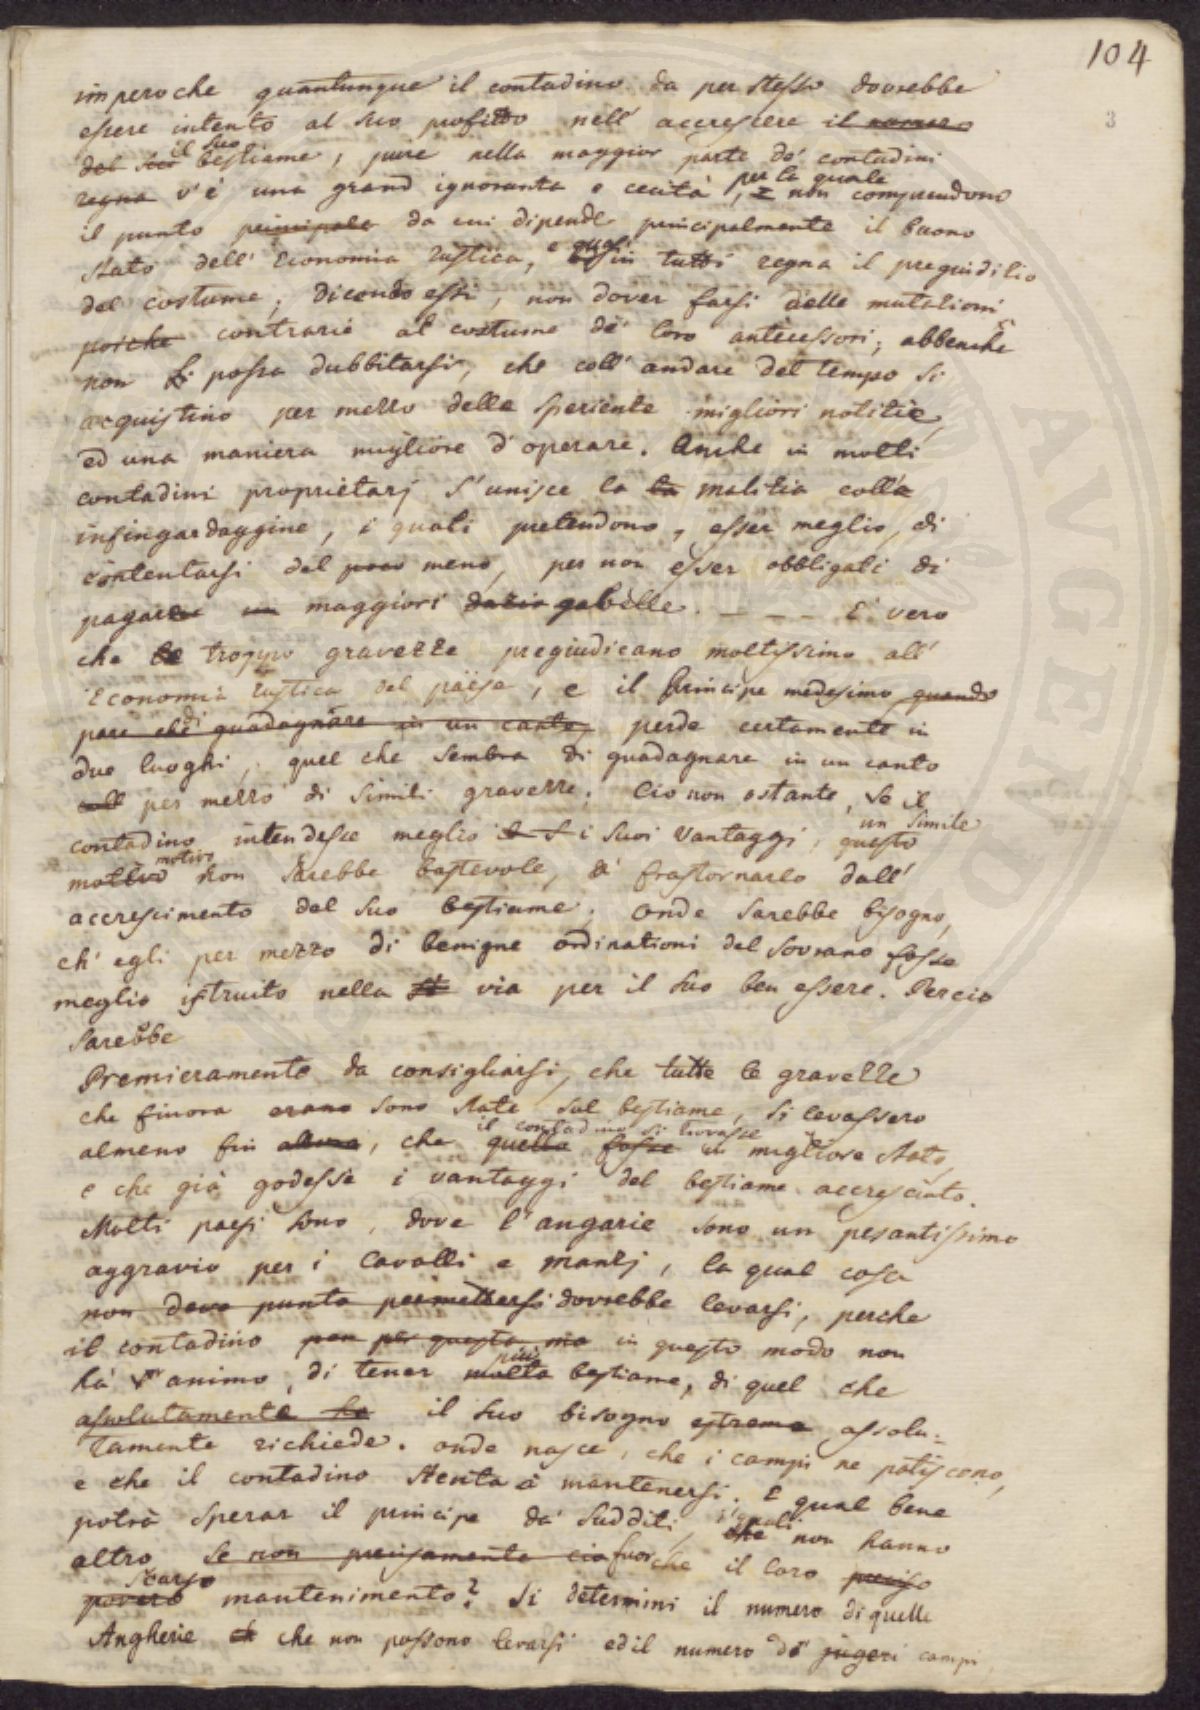 104
3
imperoche quantunque il contadino da per stesso dovrebbe
essere intento al suo profitto nell' accrescere il numero
il suo
del suo bestiame, pure nella maggior parte de' contadini
per la quale
regna v'è una grand ignoranza e cecità, e non comprendono
il punto principale da cui dipende principalmente il buono
stato dell' Economia rustica, e quasi in tutti regna il pregiuditio
del costume, dicendo essi, non dover farsi delle mutationi
poiche contrarie al costume de' loro antecessori; abbenche
non si possa dubbitarsi, che coll' andare del tempo si
acquistino per mezzo delle sperienze migliori notitie,
ed una maniera migliore d'operare. Anche in molti
contadini proprietarj s'unisce la la malitia colla
infingardaggine, i quali pretendono, esser meglio, di
contentarsi del poco meno, per non esser obbligati di
pagare maggiori dazir gabelle. - - - E' vero
che le troppo gravezze pregiudicano moltissimo all'
Economia rustica del paese, e il Principe medesimo quando
pare che di guadagnare in un canto, perde certamente in
due luoghi, quel che sembra di guadagnare in un canto
coll per mezzo di simili gravezze. Cio non ostante, se il
un simile
contadino intendesse meglio i suoi vantaggi, questo
motivo
motivo non sarebbe bastevole, a' frastornarlo dall'
accrescimento del suo bestiame. Onde sarebbe bisogno,
ch' egli per mezzo di benigne ordinationi del sovrano fosse
meglio istruito nella st via per il suo ben essere. Percio
sarebbe
Premieramente da consigliarsi, che tutte le gravezze
che finora erano sono state sul bestiame, si levassero
il contadino si trovasse
almeno fin allora, che quello fosse in migliore stato,
e che già godesse i vantaggi del bestiame accresciuto.
Molti paesi sono, dove l'angarie sono un pesantissimo
aggravio per i cavalli e manzj, la qual cosa
non deve punto permettersi dovrebbe levarsi, perche
il contadino non per questo mo in questo modo non
più
hà animo, di tener molto bestiame, di quel che
assolutamente ha il suo bisogno estremo assolu=
tamente richiede. onde nasce, che i campi ne patiscono,
e che il contadino stenta à mantenersi. E qual bene
i quali
potrà sperar il principe da' sudditi, che non hanno
altro se non precisamente cio fuorche il loro preciso
scarso
povero mantenimento? Si determini il numero di quelle
Angherie ch che non possono levarsi ed il numero de' jugeri campi